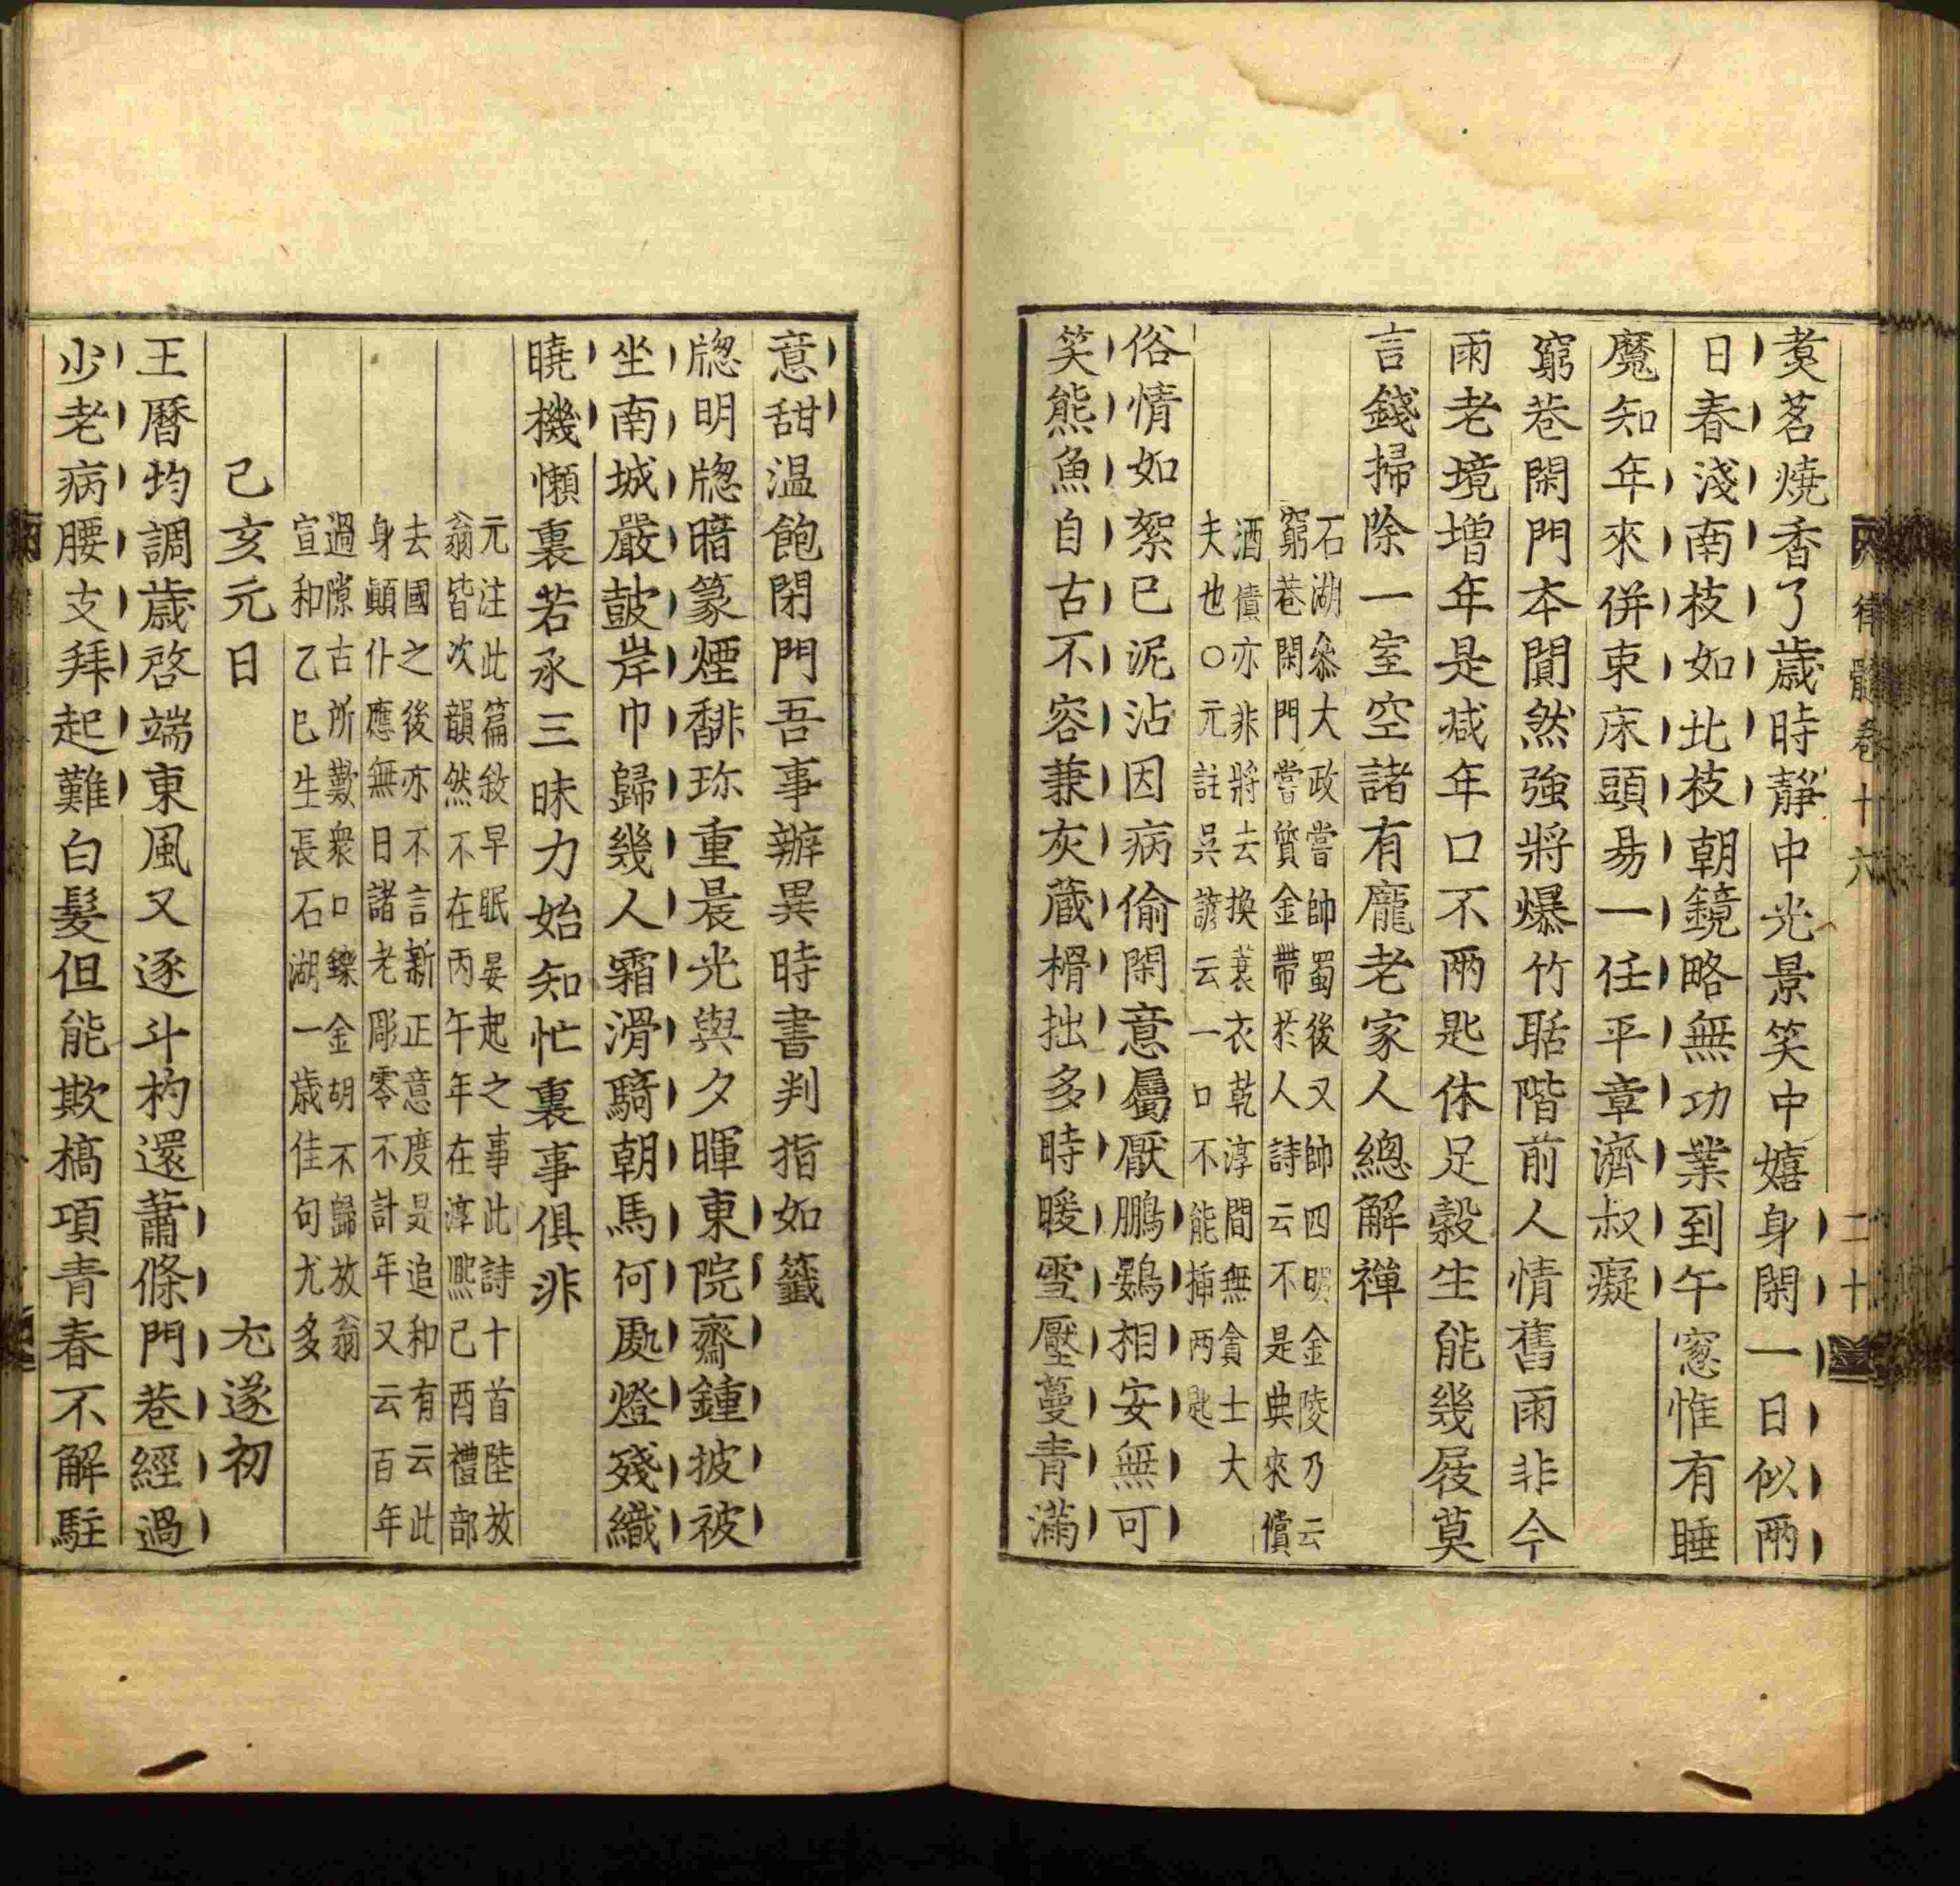 煑茗燒香了歲時靜中光景笑中嬉身閑一日似兩
日春淺南枝如北枝朝鏡略無功業到午窻惟有睡
魔知年來併束床頭易一任平章濟叔癡
窮巷閑門本閴然強將爆竹聒階前人情舊雨非今
雨老境增年是減年口不兩匙休足穀生能幾屐莫
言錢掃除一室空諸有龐老家人總解禅
石湖叅大政嘗帥蜀後又帥四明金陵乃云
窮巷閑門嘗質金帶於人詩云不是典來償
酒債亦非將去換蓑衣乾淳間無貪士大
夫也○元註吳諺云一口不能揷两匙
俗情如絮已泥沾因病偷閑意屬厭鵬鷃相安無可
笑熊魚自古不容兼灰蔵榾拙多時暖雪壓蔓青滿
律髓卷十六
二十
意甜温飽閉門吾事辦異時書判指如籤
牕明牕暗篆煙馡珎重晨光與夕暉東院齋鍾披被
坐南城嚴鼓岸巾歸幾人霜滑騎朝馬何處燈殘織
曉機懶裏若承三昧力始知忙裏事俱非
元注此篇敘早眠晏起之事此詩十首陸放
翁皆次韻然不在丙午年在淳熈己酉禮部
去國之後亦不言新正意度是追和有云此
身顚仆應無日諸老彫零不計年又云百年
過隙古所歎衆口鑠金胡不歸放翁
宣和乙巳生長石湖一歲佳句尤多
己亥元日　尤遂初
王曆均調歲啓端東風又逐斗杓還蕭條門巷經過
少老病腰支拜起難白髮但能欺槁項青春不解駐